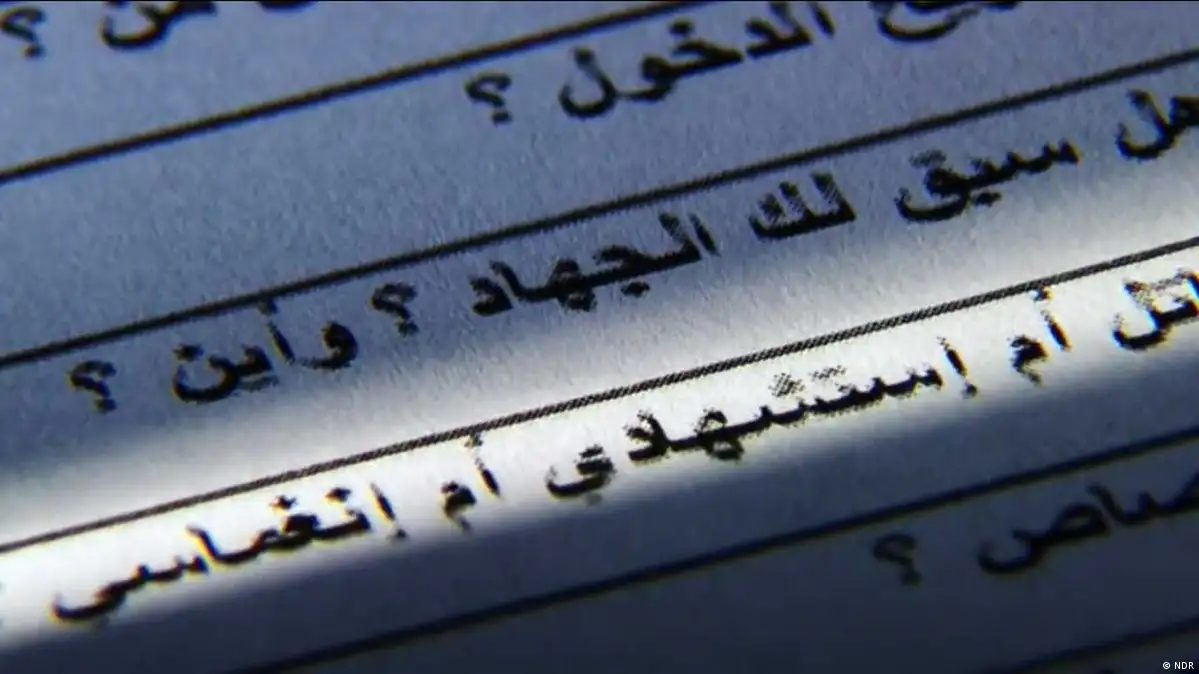 ؟
الدخول ؟
هل سبق لك الجهاد ؟ وأين ؟
أم إستشهادي أم إنغماسي
؟
© NDR